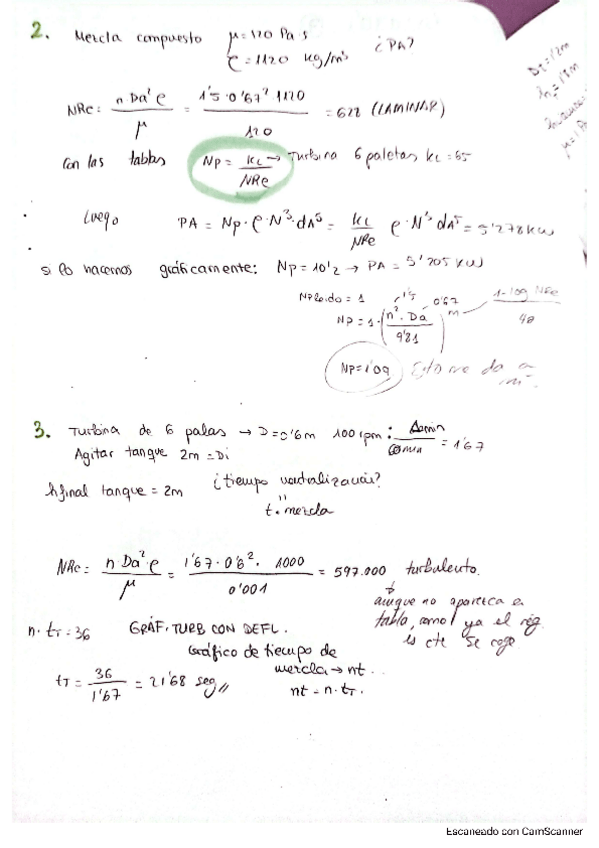 2. Mezcla compuesto μ = 120 Pa·s
ρ = 1120 kg/m³ ¿PA?
DT = 1'2m
NRe: n Da² ρ / μ = 1'5 · 0'67² · 1120 / 120 = 6'22 (LAMINAR)
Con las tablas Np = KL / NRe → Turbina 6 paletas KL: 65
Luego PA = Np · ρ · N³ · dA⁵ = KL / NRe ρ · N³ dA⁵ = 5'278 kW
si lo hacemos gráficamente: Np = 10'2 → PA = 5'205 kW
Np leído = 1
Np = 1 · ( n² · Da / 9'81 ) m → 1 - log NRe / 40
1'5 0'67
Np = 1'09 Esto me da a
3. Turbina de 6 palas → D = 0'6m 100 rpm : 1min / 60min = 1'67
Agitar tanque 2m = Di
h final tanque = 2m ¿tiempo neutralización?
"
t. mezcla
NRe: n Da² ρ / μ = 1'67 · 0'6² · 1000 / 0'001 = 597.000 turbulento.
aunque no aparezca en
tabla, como ya el rég.
es cte se coge
n · tT = 36 GRÁF. TURB CON DEFL.
Gráfico de tiempo de
mezcla → nt
tT = 36 / 1'67 = 21'68 seg //
nt = n · tT.
Escaneado con CamScanner